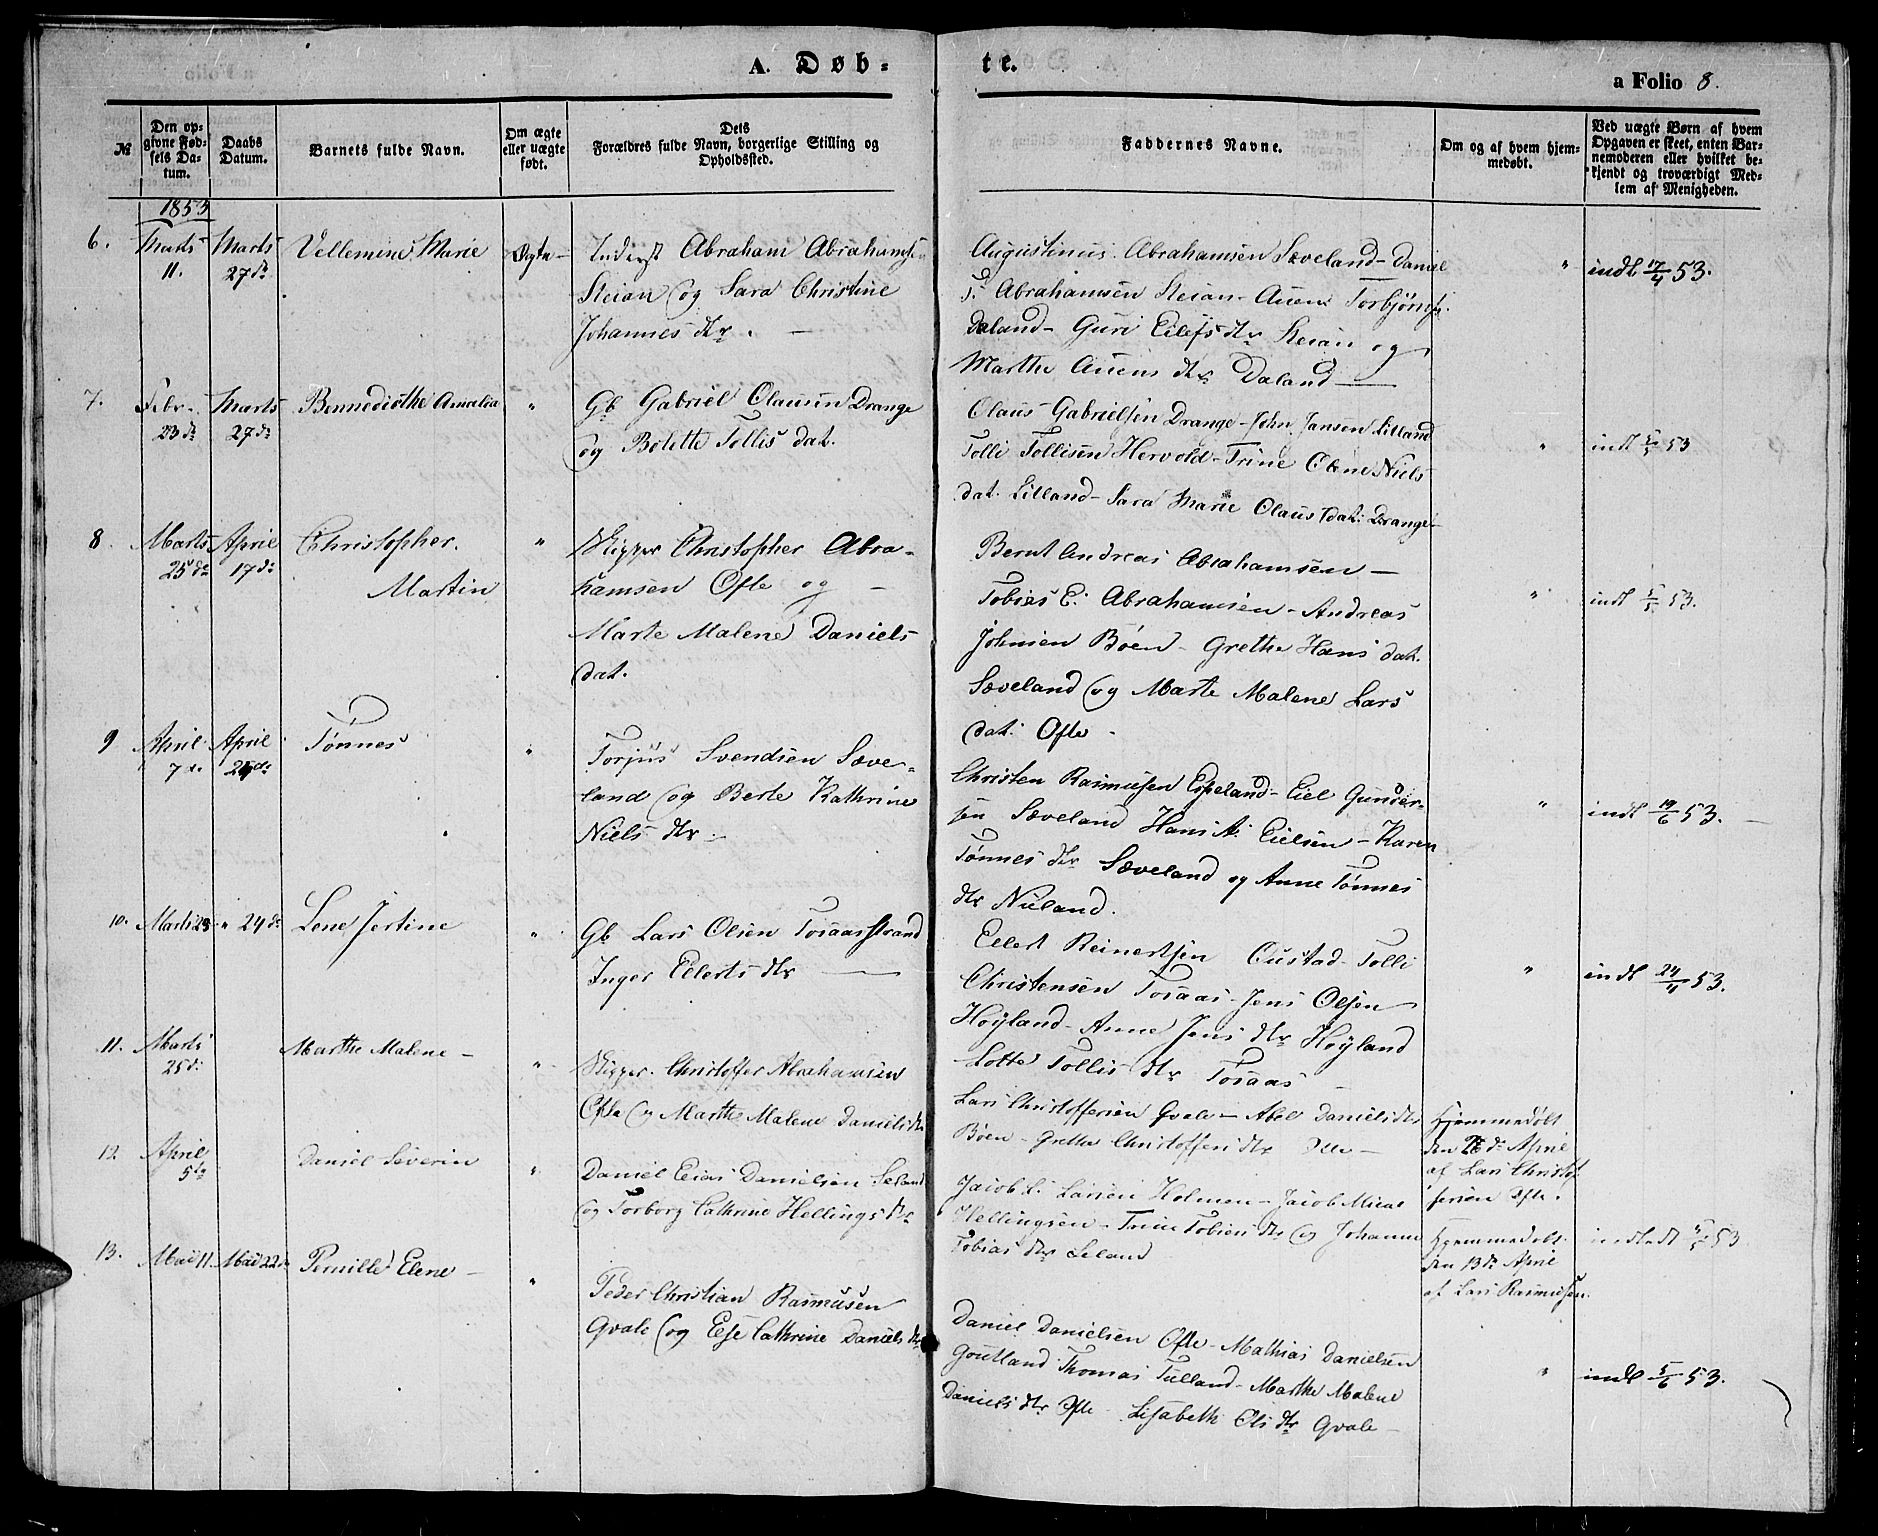 A. Døb-
te.
a Folio 8.
№
Den op-
givne Fød-
sels Da-
tum.
Daabs
Datum.
Barnets fulde Navn.
Om ægte
eller uægte
født.
Dets
Forældres fulde Navn, borgerlige Stilling og
Opholdssted.
Faddernes Navne.
Om og af hvem hjem-
medøbt.
Ved uægte Børn af hvem
Opgaven er skeet, enten Bar-
nemoderen eller hvilket be-
kjendt og troværdigt Med-
lem af Menigheden.
1853
6.
Marts
11.
Marts
27 de
Vellemine Marie
Ægte
Inderst Abraham Abrahamsen
Steian og Sara Christine
Johannes dtr. —
Augustinus Abrahamsen Sæveland - Daniel
Abrahamsen Steian - Auen Torbjørns.
Daland - Guri Eilefs dtr Steian og
Marthe Auens dtr Daland —
"
indt 17/4 53.
7.
Febr.
23 de
Marts
27 de
Bennedicthe Amalia
"
Gb Gabriel Clausen Drange
og Bolette Tollis dat.
Claus Gabrielsen Drange - John Jansen Lilland
Tolli Tollisen Hervold - Trine Oline Niels
dat. Lilland - Sara Marie Claus dat: Drange -
"
indt 5/5 53
8.
Marts
25 de
April
17 de
Christopher
Martin
"
Skipper Christopher Abra-
hamsen Ofte og —
Marte Malene Daniels
dat.
Bernt Andreas Abrahamsen —
Tobias E. Abrahamsen - Andreas
Johnsen Bøen - Grethe Hans dat.
Sæveland og Marte Malene Lars
dat: Ofte -
"
indt 5/5 53.
9
April
7 de
April
24 de
Tønnes
"
Torjus Svendsen Sæve-
land og Berte Kathrine
Niels dtr. -
Christen Rasmusen Espeland - Eiel Gunder-
sen Sæveland Hans A. Eielsen - Karen
Tønnes dtr Sæveland og Anne Tønnes
dtr Nuland.
"
indt 19/6 53. —
10.
Marts 23
" 24 de
Lene Jertine
"
Gb Lars Olsen Tosaasstrand
Inger Eilerts dtr —
Eilert Reinertsen Custad - Tolli
Christensen Tosaas - Jens Olsen
Høyland - Anne Jens dtr Høyland
Lotte Tollis dtr Tosaas —
"
indt 24/4 53.
11.
Marts
25 d.
Marthe Malene -
"
Skipper Christoffer Abrahamsen
Ofte og Marthe Malene Daniels dtr
Lars Christoffersen Qvale - Abel Daniels dtr
Bøen - Grethe Christoffers dtr Ofte —
Hjemmedøbt
den 26 de April
af Lars Christof-
fersen Ofte.
12.
April
5 te
Daniel Severin
"
Daniel Elias Danielsen Leland
og Torborg Cathrine Hellings dtr
Jacob L. Larsen Holmen - Jacob Micas
Hellingsen - Trine Tobias dtr og Johanne
Tobias dtr Leland
Hjemmedøbt
den 13 de April
af Lars Rasmusen.
indtedt 5/5 53
13.
Mai 11.
Mai 22 de
Pernille Elene —
"
Peder Christian Rasmusen
Qvale og Else Cathrine Daniels dtr
Daniel Danielsen Ofte - Mathias Danielsen
Goutland Thomas Tulland - Marthe Malene
Daniels dtr Ofte - Lisabeth Ols dtr Qvale -
"
indt 5/6 53.